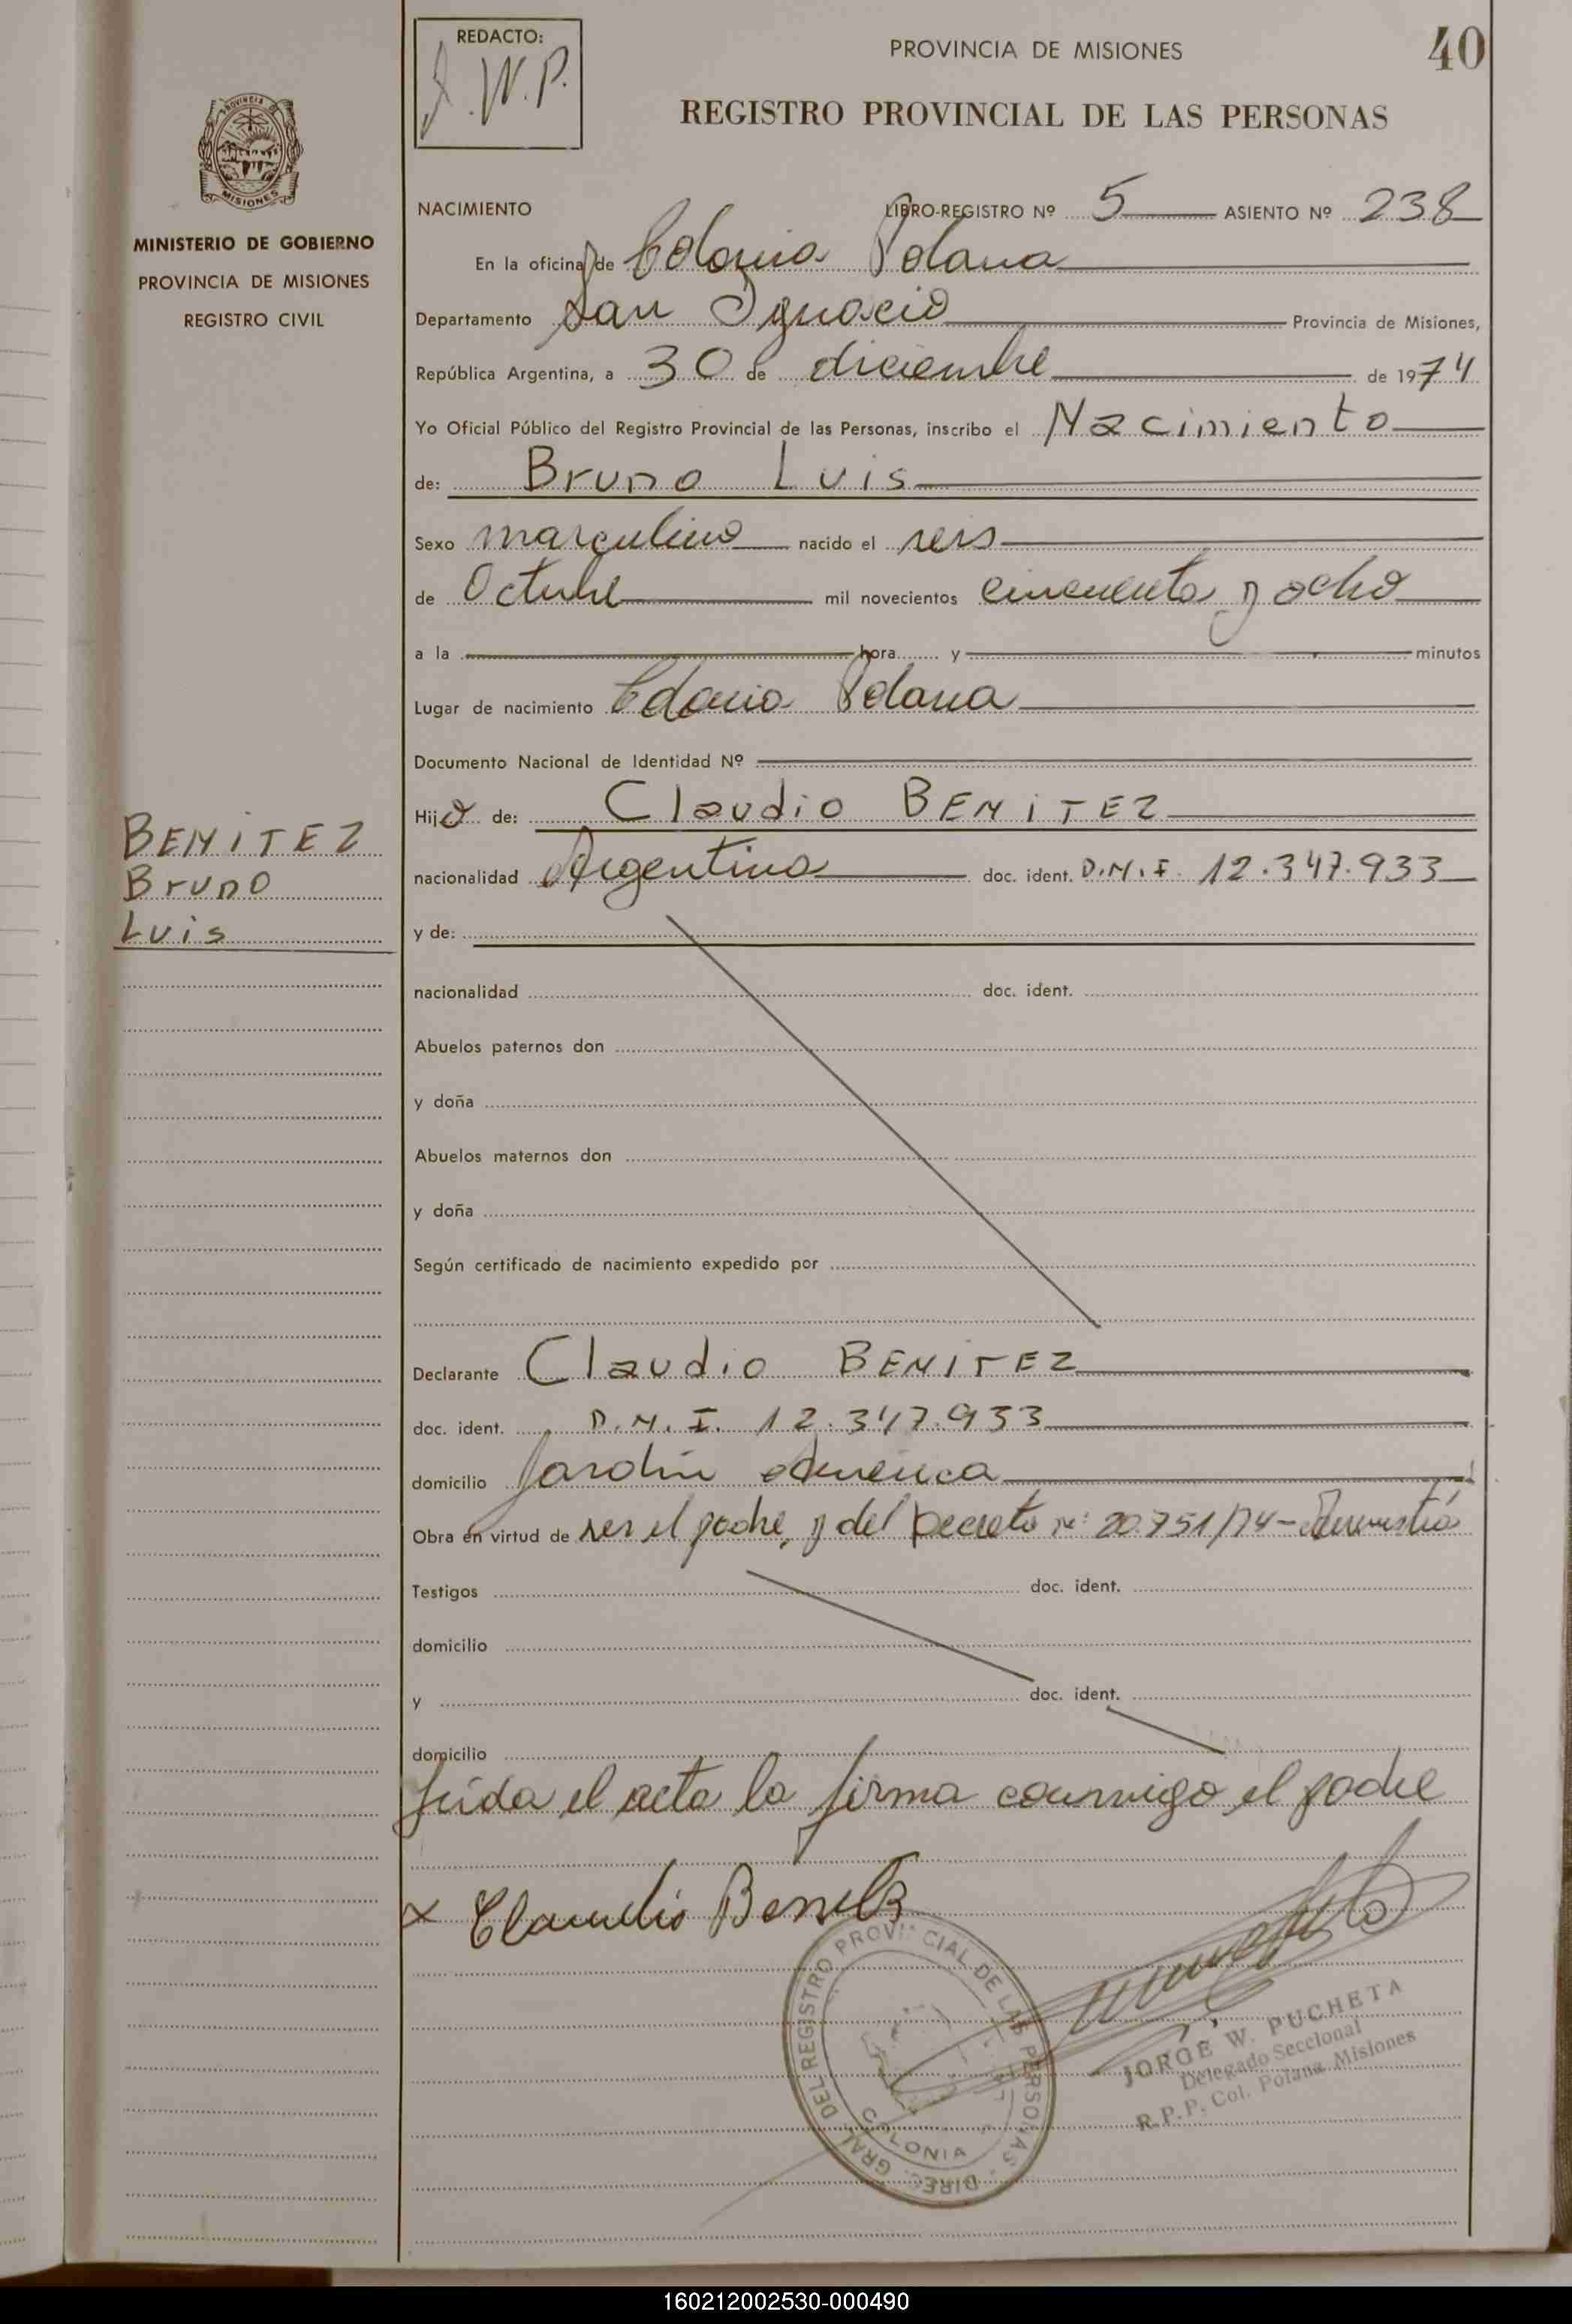 REDACTO:
J. W. P.
PROVINCIA DE MISIONES
40
REGISTRO PROVINCIAL DE LAS PERSONAS
PROVINCIA DE
MISIONES
MINISTERIO DE GOBIERNO
PROVINCIA DE MISIONES
REGISTRO CIVIL
NACIMIENTO LIBRO-REGISTRO Nº 5 ASIENTO Nº 238
En la oficina de Colonia Polana
Departamento San Ignacio Provincia de Misiones,
República Argentina, a 30 de diciembre de 1974
Yo Oficial Público del Registro Provincial de las Personas, inscribo el Nacimiento
de: Bruno Luis
Sexo masculino nacido el seis
de Octubre mil novecientos cincuenta y ocho
a la hora y minutos
Lugar de nacimiento Colonia Polana
Documento Nacional de Identidad Nº
Hijo de: Claudio BENITEZ
BENITEZ
Bruno
Luis
nacionalidad Argentina doc. ident. D.N.I. 12.347.933
y de:
nacionalidad doc. ident.
Abuelos paternos don
y doña
Abuelos maternos don
y doña
Según certificado de nacimiento expedido por
Declarante Claudio BENITEZ
doc. ident. D.N.I. 12.347.933
domicilio Jardín America
Obra en virtud de ser el padre, y del Decreto nº 20.751/74 - Amnistía
Testigos doc. ident.
domicilio
y doc. ident.
domicilio
Leída el acta la firma conmigo el padre
x Claudio Benitez
DIREC. GRAL. DEL REGISTRO PROVINCIAL DE LAS PERSONAS
COLONIA
JORGE W. PUCHETA
Delegado Seccional
R.P.P. Col. Polana Misiones
160212002530-000490